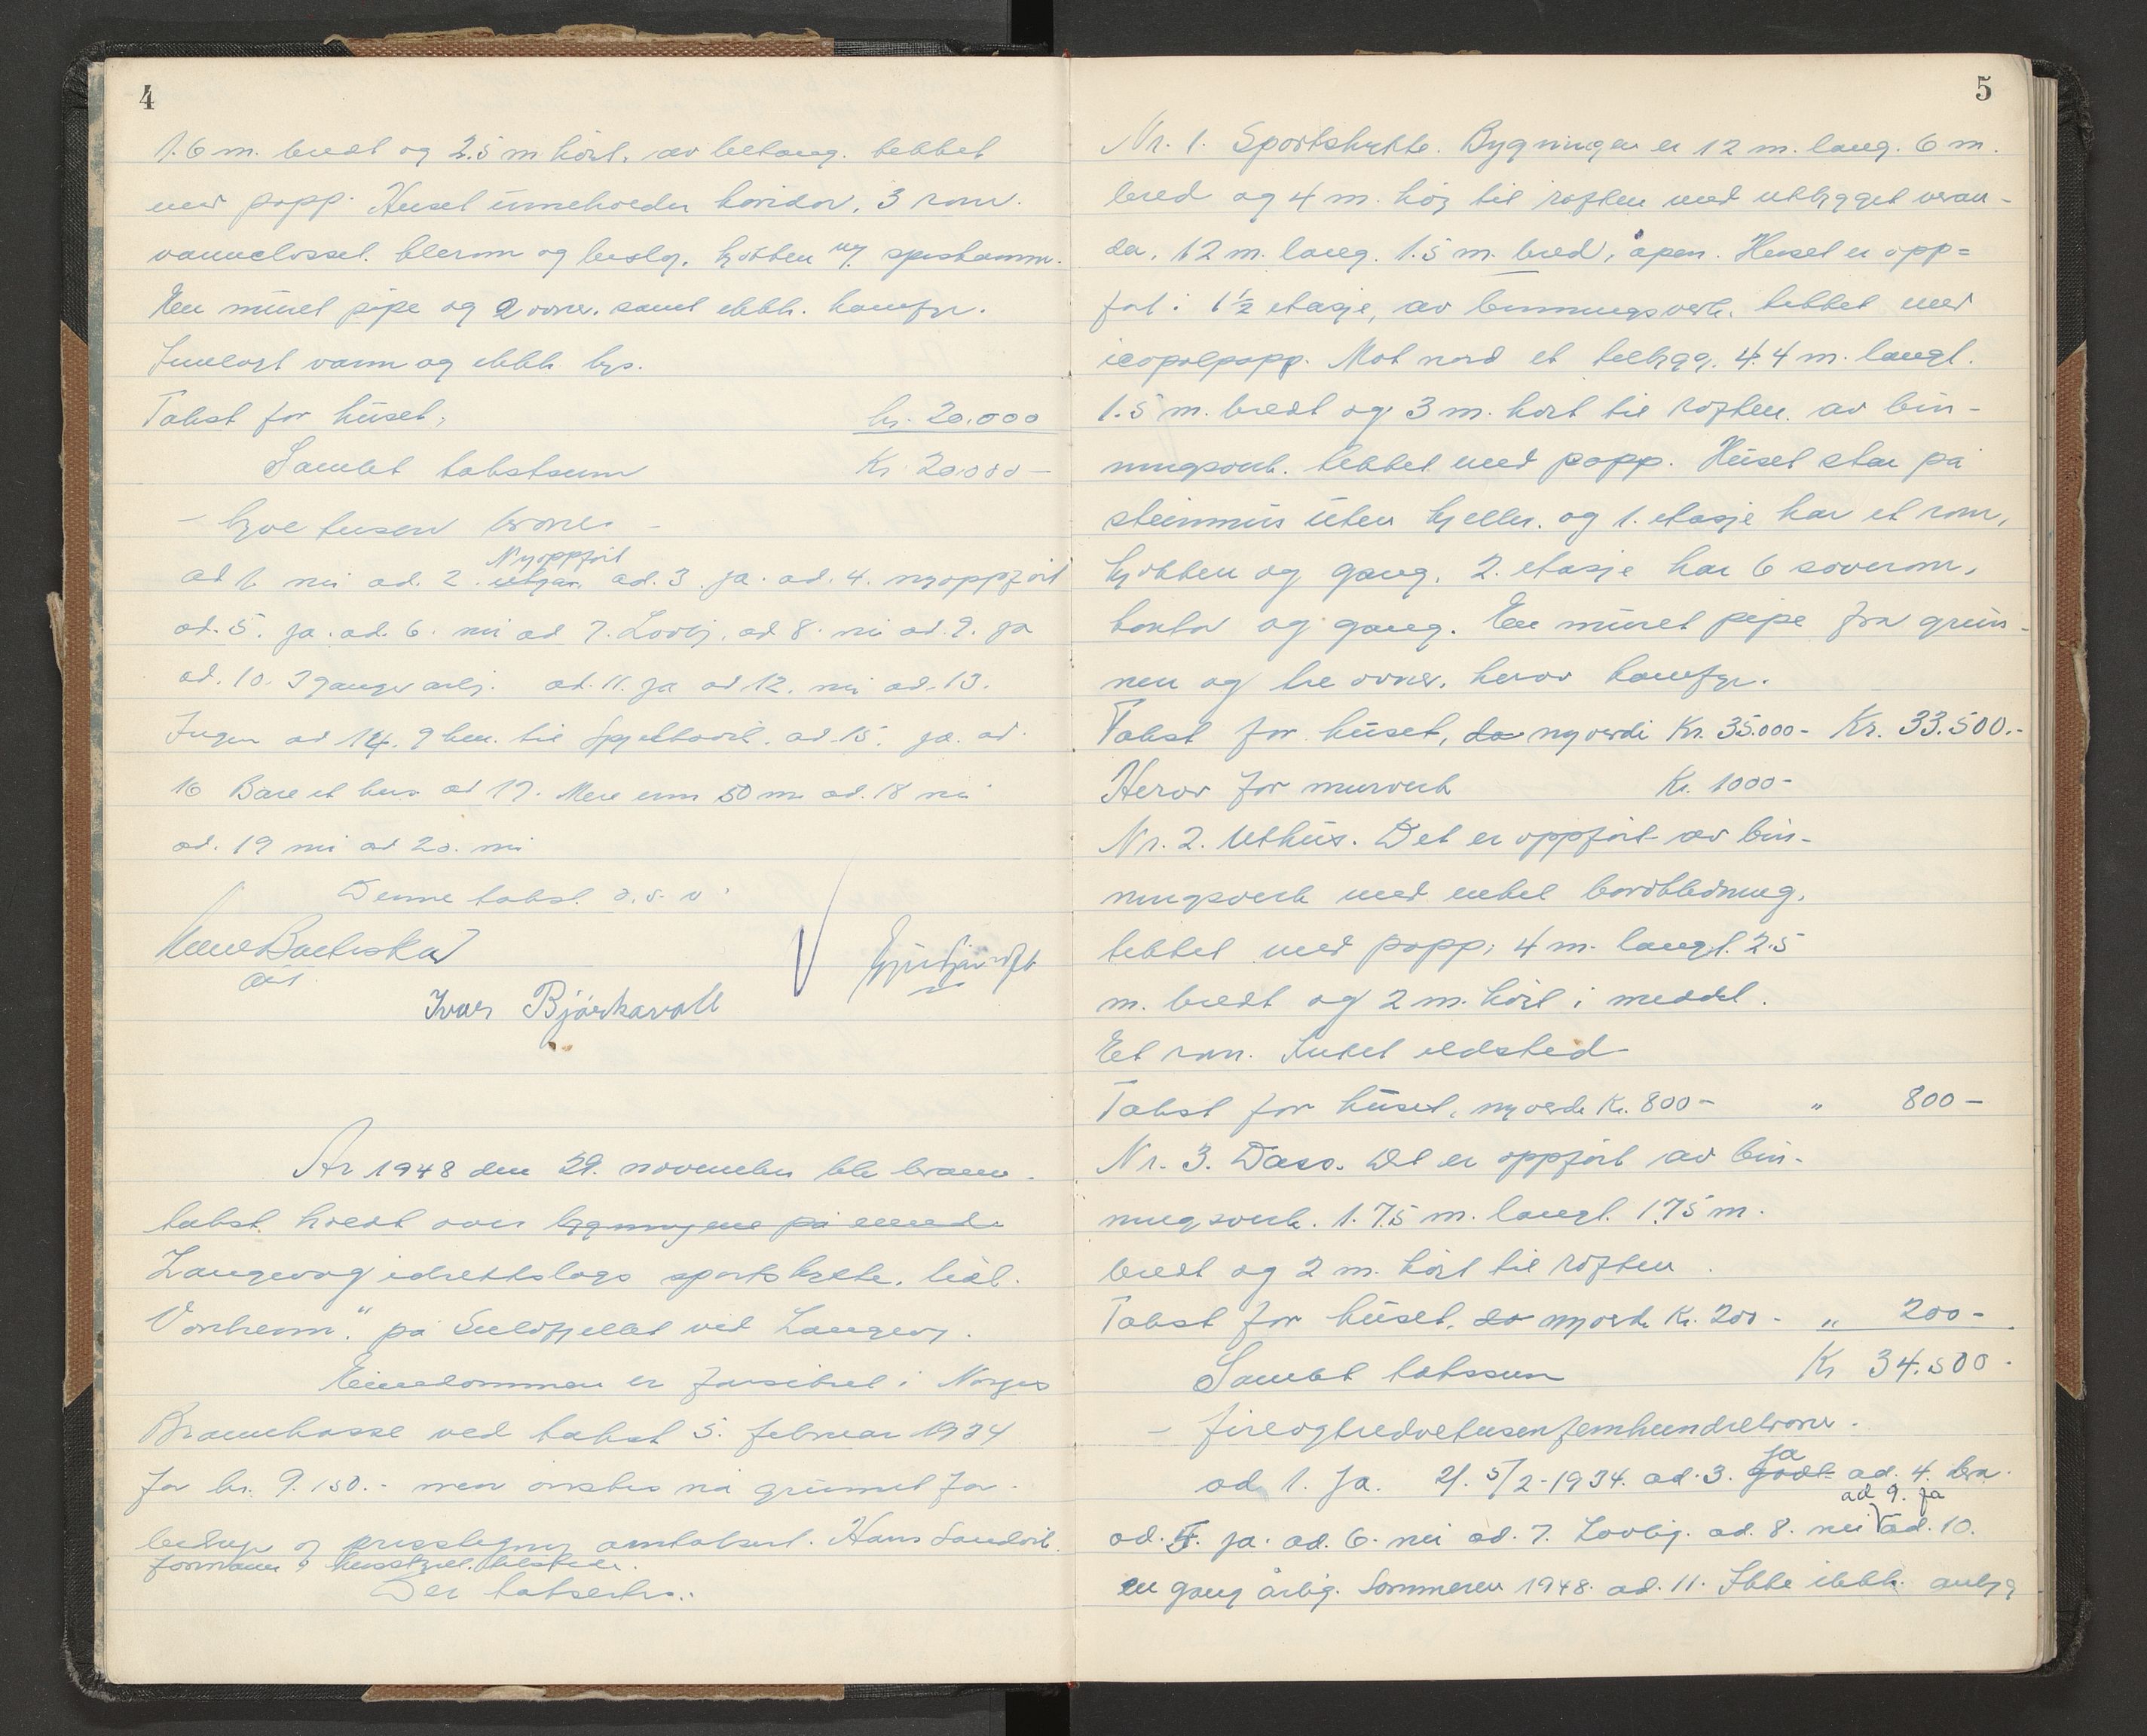 4
1.6 m. bredt og 2.5 m höit. av betong. tekket
med papp. Huset inneholder koridor, 3 rom.
vannclosset. klerom og bislag. kjökken og spiskammer.
En muret pipe og 2 ovner. samt elektr. komfyr.
Innlagt vann og elektr. lys.
Takst for huset,
kr. 20.000
Samlet takstsum
Kr 20000-
- tjve tusen kroner -
Nyoppfört
ad 1. nei ad. 2. utgår. ad. 3. ja. ad. 4. nyoppfört
ad. 5. ja. ad. 6. nei ad 7. Lovlig. ad 8. nei ad. 9. ja
ad. 10. 3 ganger årlig. ad. 11. ja ad 12. nei ad. 13.
Ingen ad 14. 9 km. til Spjelkavik. ad 15. ja. ad.
16 Bare et hus ad 17. Mere enn 50 m ad. 18 nei
ad. 19 nei ad 20. nei
Denne takst. o. s. v.
Ivar Björkavoll
År 1948 den 29. november ble brann-
takst holdt over bygningene på
Langevåg idrettslags sportshytte, kal.
"Vonheim." på Sulafjellet ved Langevåg.
Eiendommen er forsikret i Norges
Brannkasse ved takst 5. februar 1934
for kr. 9.150.- men önskes nå grunnet for-
bedringer og prisstigning omtaksert. Hans Sandvik.
formann i husstyret.
Der takserths.:
5
Nr. 1. Sportshytte. Bygningen er 12 m. lang. 6 m.
bred og 4 m. höy til röften med utbygget veran-
da, 12 m. lang. 1.5 m. bred, åpen. Huset er opp=
fört i 1½ etasje, av binningsverk. tekket med
icopalpapp. Mot nord et tilbygg. 4.4 m. langt.
1.5 m. bredt og 3 m. höit til röften. av bin-
ningsverk. tekket med papp. Huset står på
steinmur uten kjeller. og 1. etasje har et rom,
kjökken og gang. 2. etasje har 6 soverom,
kontor og gang. En muret pipe fra grun-
nen og tre ovner. herav komfyr.
Takst for huset, do nyverdi Kr. 35.000- Kr. 33.500.-
Herav for murverk Kr. 1000-
Nr. 2. Uthus. Det er oppfört av bin-
ningsverk med enkel bordkledning.
tekket med papp, 4 m. langt. 2.5
m. bredt og 2 m. höit i meddel.
Et rom. Intet ildsted
Takst for huset. nyverdi Kr. 800- " 800-
Nr. 3. Dass. Det er oppfört av bin-
ningsverk. 1.75 m. langt. 1.75 m.
bredt og 2 m. höit til röften.
Takst for huset. do nyverdi Kr. 200- " 200-
Samlet takssum Kr 34.500-
- fireogtredvetusenfemhundrekroner -
ja
ad 1. Ja. 2/. 5/2-1934. ad. 3. godt ad. 4. bra.
ad 9. ja
ad. 5. ja. ad. 6. nei ad. 7. Lovlig. ad. 8. nei ad. 10.
en gang årlig. Sommeren 1948. ad. 11. Ikke elektr. anlegg